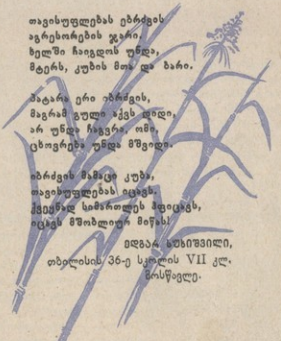 თავისუფლებას ებრძვის
აგრესორების ჯარი.
ხელში ჩაიგდოს უნდა,
მტერს, კუბის მთა და ბარი.
პატარა ერი იბრძვის,
მაგრამ გული აქვს დიდი,
არ უნდა ჩაგვრა, ომი,
ცხოვრება უნდა მშვიდი.
იბრძვის მამაცი კუბა,
თავისუფლებას იცავს,
ქვეყნად სიმართლეს ჰფიცავს,
იცავს მშობლიურ მიწას!
ედგარ
თბილისის 36-ე სკოლის VII კლ.
მოსწავლე.